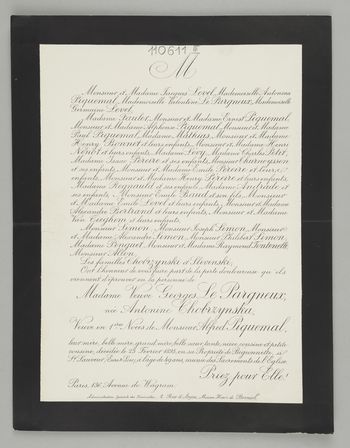 110611
M
Monsieur et Madame Jacques Level, Mademoiselle Antonina
Piquemal, Mademoiselle Valentine Le Pargneux, Mademoiselle
Germaine Level,
Madame Monsieur et Madame Ernest Piquemal,
Monsieur et Madame Alphonse Piquemal, Monsieur et Madame
Paul Piquemal, Madame Monsieur et Madame
Henry Bonnet et leurs enfants, Monsieur et Madame Henri
Nénot et leurs enfants, Madame Madame Charles
Madame Isaac Pereire et ses enfants, Monsieur Charneysson
et ses enfants, Monsieur et Madame Emile Pereire et leurs
enfants, Monsieur et Madame Henry Pereire et leurs enfants,
Madame Regnauld et ses enfants, Madame Andrade et
ses enfants, Monsieur Emile et son fils, Monsieur
et Madame Emile Level et leurs enfants, Monsieur et Madame
Alexandre Bertrand et leurs enfants, Monsieur et Madame
et leurs enfants,
Monsieur Lemon, Monsieur Joseph Lemon, Monsieur
et Madame Alexandre Lemon, Monsieur Philibert Lemon,
Madame Pinguet, Monsieur et Madame Raymond
Monsieur
Les familles Chobrzynski et Slivinski,
Ont l'honneur de vous faire part de la perte douloureuse qu'ils
viennent d'éprouver en la personne de
Madame Veuve Georges Le Pargneux,
née Antonine Chobrzynska,
Veuve en 1ères Noces de Monsieur Alfred Piquemal,
leur mère, belle-mère, grand'mère, belle-sœur, tante, nièce, cousine et petite
cousine, décédée le 23 Février 1895, en sa Propriété de à
St Sauveur, à l'âge de 49 ans, munie des Sacrements de l'Eglise.
Priez pour Elle!
Paris, 136, Avenue de Wagram.
Administration spéciale des Funérailles, 2, Rue d'Anjou, Maison Henri de Borniol.